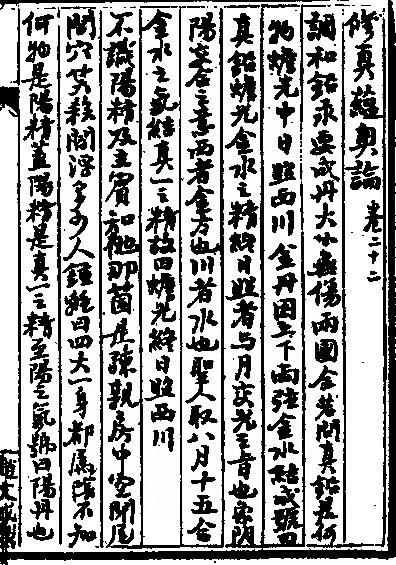 修真蘊奧論 卷二十二
調和鉛汞要成丹大小無傷兩國全若問真鉛是何
物蟾光中日照西川 金丹因上下兩弦金水結成號曰
真鉛蟾光金水之精終日照者与月交光之旨也象陰
陽交合之意西者金方也川者水也聖人取八月十五合
金水之氣結真一之精故曰蟾光終日照西川
不識陽精及主賓知他那箇是踈親房中空閉尾
閭穴悞殺閻浮多少人鍾離曰四大一身都屬陰不知
何物是陽精蓋陽精是真一之精至陽之氣號曰陽丹也